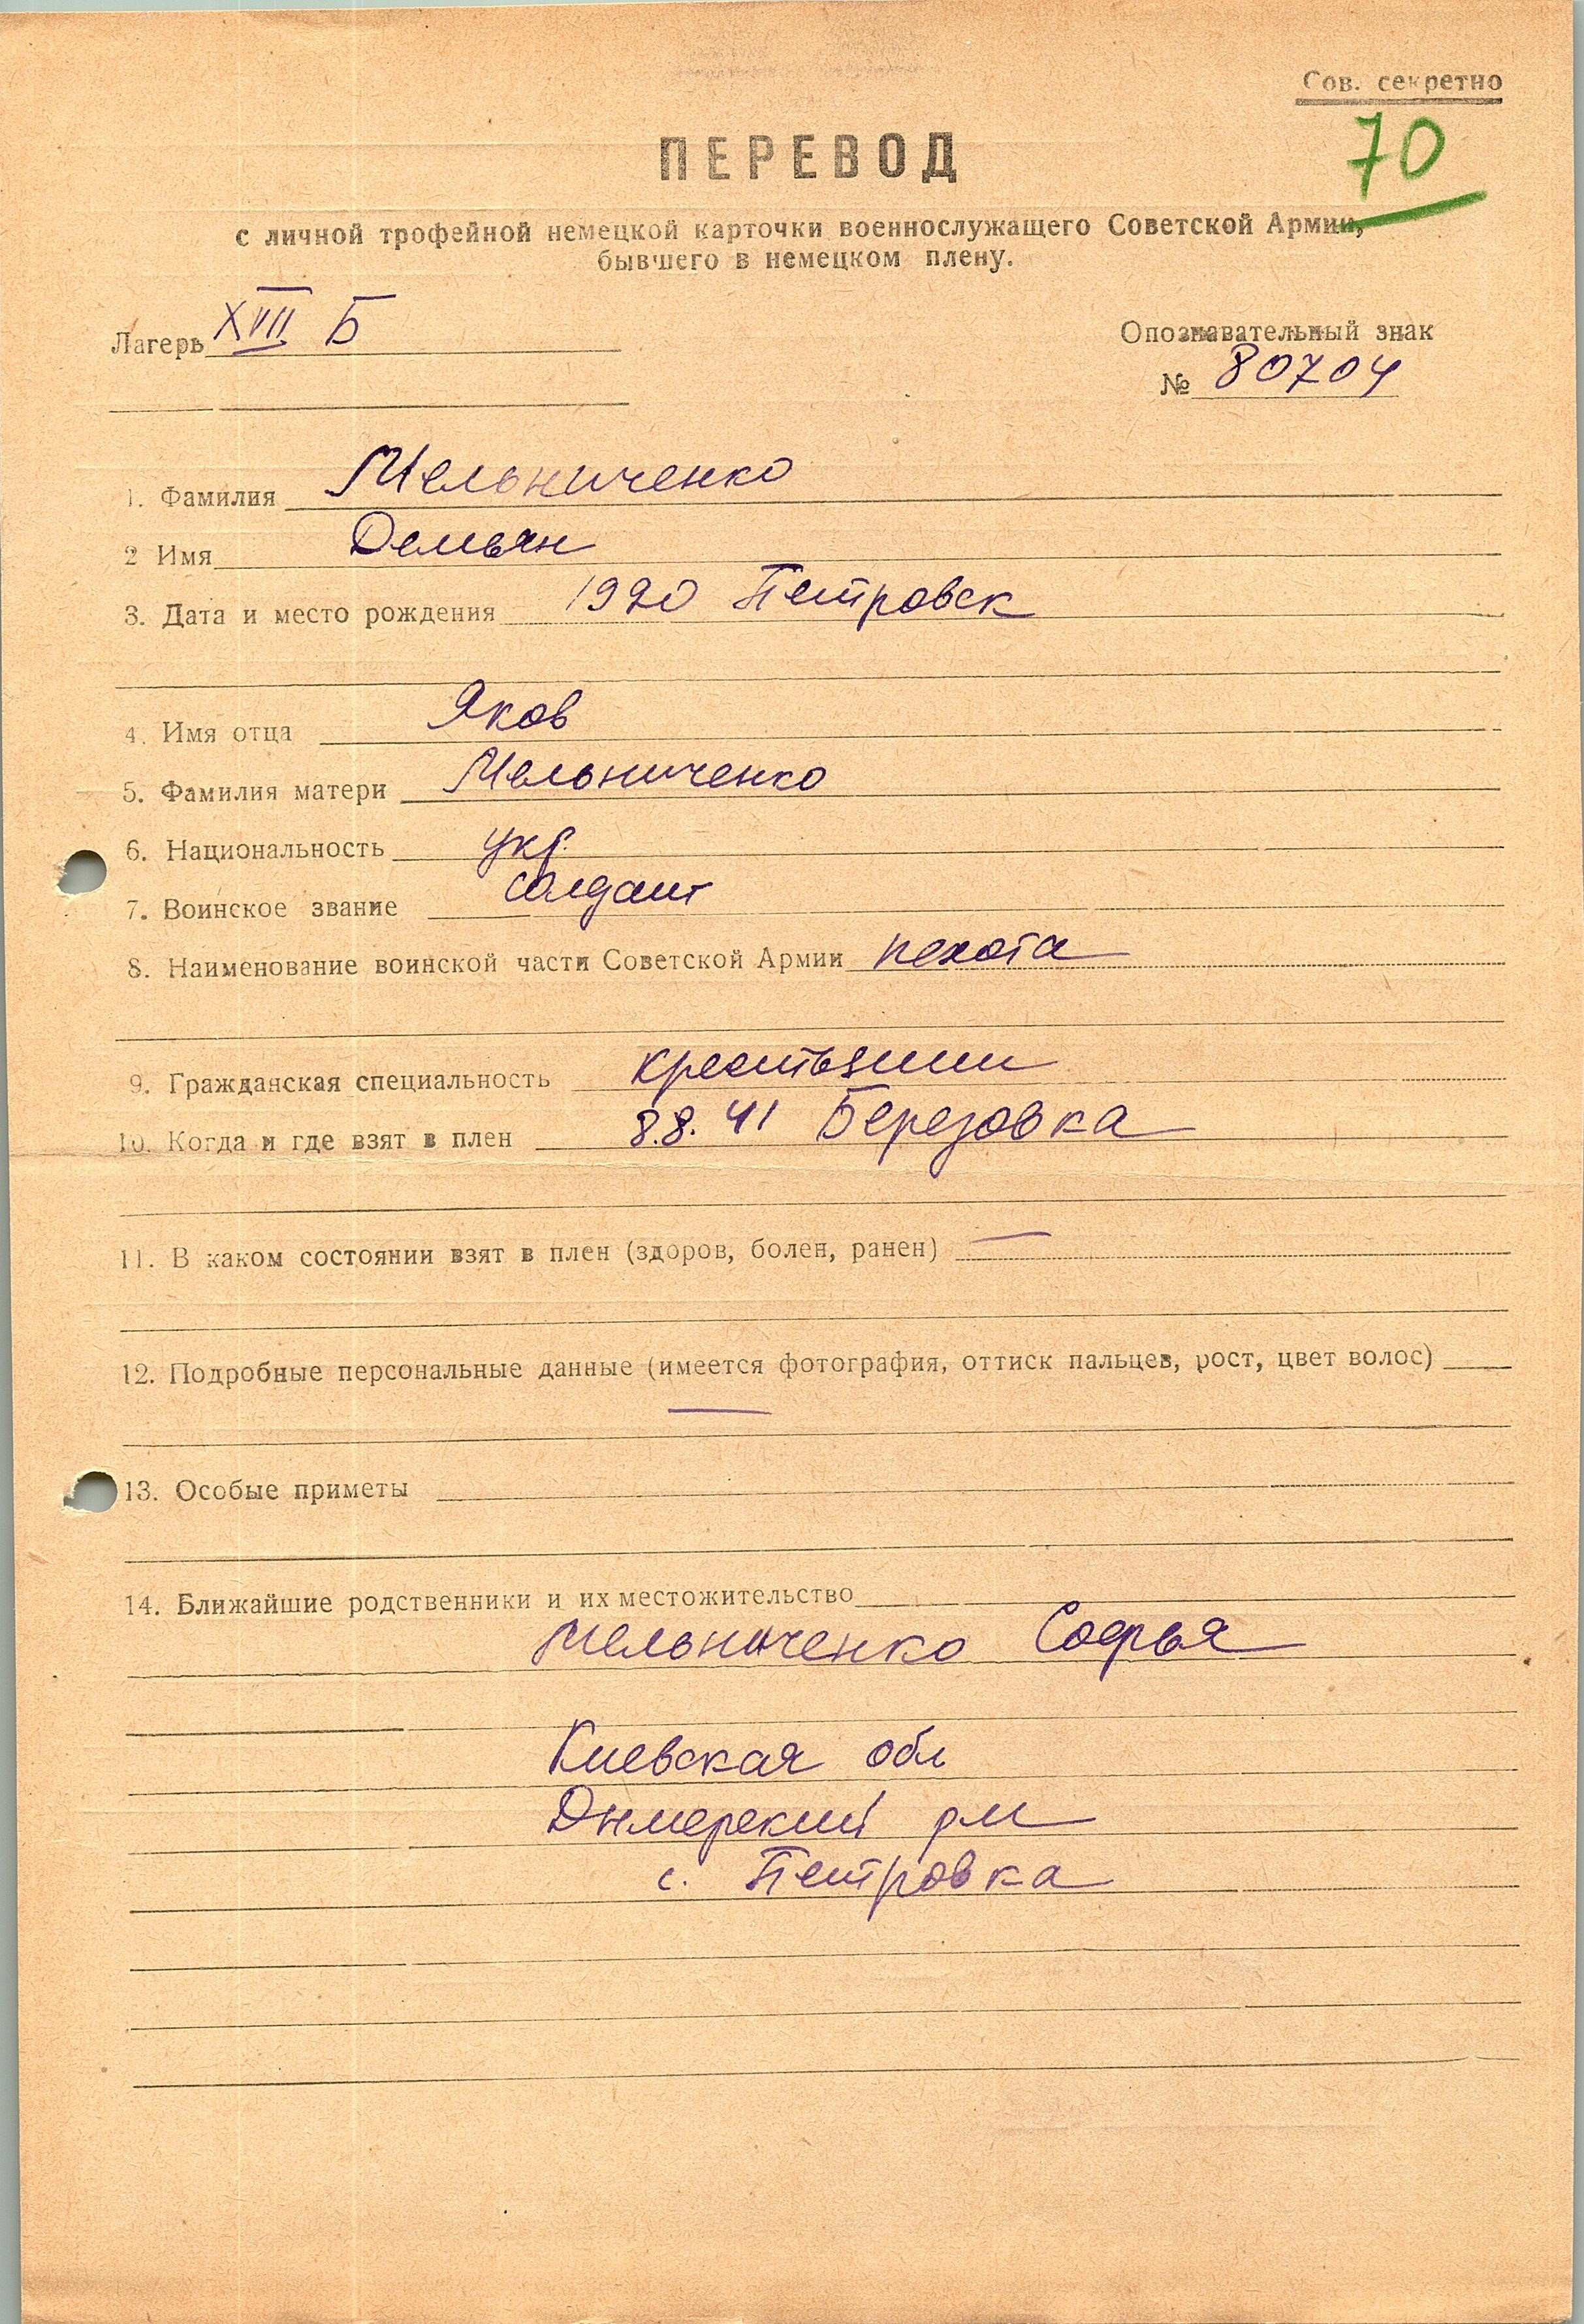 Сов. секретно
70
ПЕРЕВОД
с личной трофейной немецкой карточки военнослужащего Советской Армии,
бывшего в немецком плену.
Лагерь XVII Б
Опознавательный знак
№ 80704
1. Фамилия Мельниченко
2 Имя Демьян
3. Дата и место рождения 1920 Петровск
4. Имя отца Яков
5. Фамилия матери Мельниченко
6. Национальность укр.
7. Воинское звание солдат
8. Наименование воинской части Советской Армии пехота
9. Гражданская специальность крестьянин
10. Когда и где взят в плен 8.8.41 Березовка
11. В каком состоянии взят в плен (здоров, болен, ранен) —
12. Подробные персональные данные (имеется фотография, оттиск пальцев, рост, цвет волос)
—
13. Особые приметы
14. Ближайшие родственники и их местожительство
Мельниченко Софья
Киевская обл
Дымерский
с. Петровка